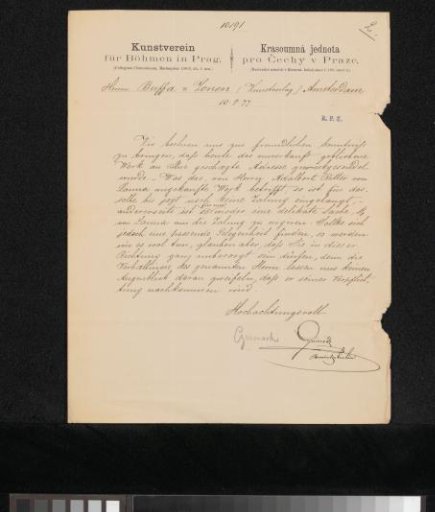 10191
Kunstverein
für Böhmen in Prag.
Krasoumná jednota
pro Čechy v Praze.
Herrn Buffa & Zonen (Kunsthandlg) Amsterdam
10 9 77
R. P. Z.
Wir beehren uns zur freundlichen Kenntniß
zu bringen, daß heute das unverkauft gebliebene
Werk an Ihre geschätzte Adresse
wurde. Was das, von Herrn Adalbert Ritter von
Lanna angekaufte Werk betrifft, so ist für das-
selbe bis jetzt noch keine Zalung eingelangt;
anderseits ist es eine delikate Sache H.
von Lanna an die Zalung zu Sollte sich
jedoch eine passende Gelegenheit finden, so werden
wir es wol tun, glauben aber, daß Sie in dieser
Richtung ganz unbesorgt sein dürfen, denn die
des genannten Herrn lassen uns keinen
Augenblick daran zweifeln, daß er seiner Verpflich-
tung nachkommen wird.
Hochachtungsvoll